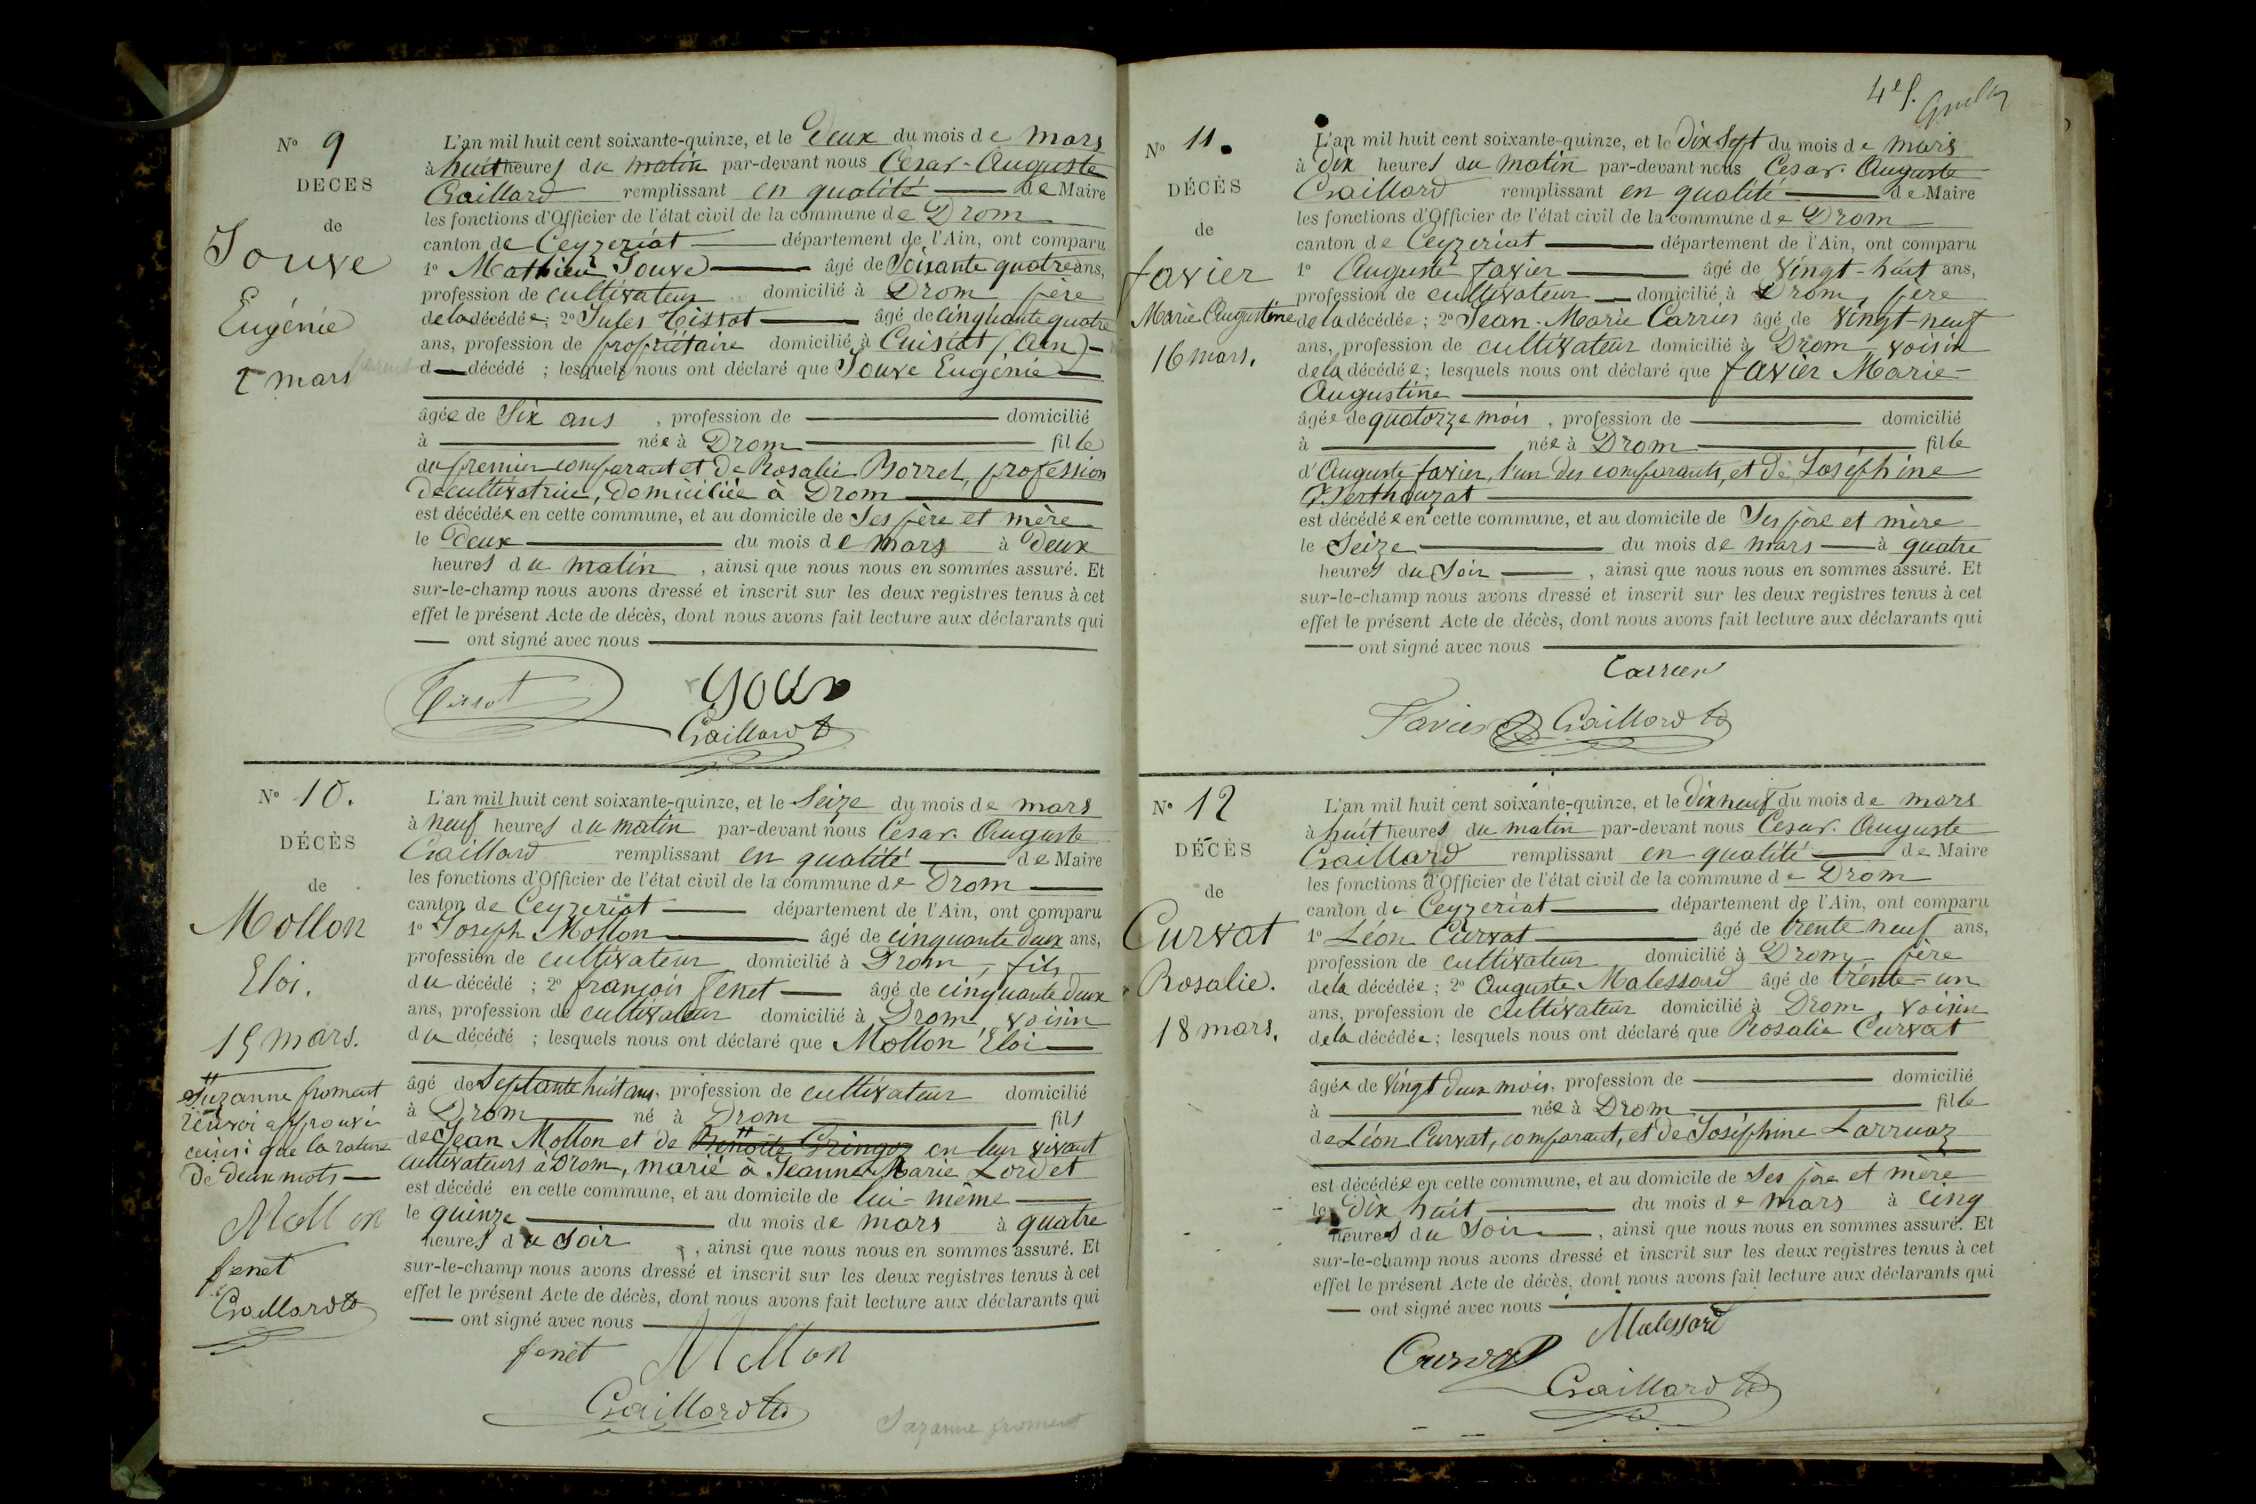 Nº 9
DÉCÈS
de
Jouve
Eugénie
2 mars
L'an mil huit cent soixante-quinze, et le deux du mois de mars
à huit heures du matin par-devant nous César-Auguste
Craillard remplissant en qualité de Maire
les fonctions d'Officier de l'état civil de la commune de Drom
canton de Ceyzeriat département de l'Ain, ont comparu
1º Mathieu Jouve âgé de Soixante quatre ans,
profession de cultivateur domicilié à Drom père
de la décédée; 2º Jules Tissot âgé de cinquante quatre
ans, profession de propriétaire domicilié à Cuisiat (Ain)
d décédé ; lesquels nous ont déclaré que Jouve Eugénie
âgée de Six ans , profession de domicilié
à née à Drom fille
du premier comparant et de Rosalie Borret, profession
de cultivatrice, domiciliée à Drom
est décédée en cette commune, et au domicile de Ses père et mère
le deux du mois de mars à deux
heures du matin , ainsi que nous nous en sommes assuré. Et
sur-le-champ nous avons dressé et inscrit sur les deux registres tenus à cet
effet le présent Acte de décès, dont nous avons fait lecture aux déclarants qui
ont signé avec nous
Tissot Jouve
Craillard
Nº 10.
DÉCÈS
de
Mollon
Eloi.
15 mars.
Suzanne froment
renvoi approuvé
ainsi que la rature
de deux mots
Mollon
fenet
Craillard
L'an mil huit cent soixante-quinze, et le Seize du mois de mars
à neuf heures du matin par-devant nous Cesar-Auguste
Craillard remplissant en qualité de Maire
les fonctions d'Officier de l'état civil de la commune de Drom
canton de Ceyzeriat département de l'Ain, ont comparu
1º Joseph Mollon âgé de cinquante deux ans,
profession de cultivateur domicilié à Drom, fils
du décédé ; 2º françois Fenet âgé de cinquante deux
ans, profession de cultivateur domicilié à Drom, voisin
du décédé ; lesquels nous ont déclaré que Mollon Eloi
âgé de Septante huit ans, profession de cultivateur domicilié
à Drom né à Drom fils
de Jean Mollon et de Benoîte Gringoz en leur vivant
cultivateurs à Drom, marié à Jeanne Marie Lordet
est décédé en cette commune, et au domicile de lui-même
le quinze du mois de mars à quatre
heures du soir , ainsi que nous nous en sommes assuré. Et
sur-le-champ nous avons dressé et inscrit sur les deux registres tenus à cet
effet le présent Acte de décès, dont nous avons fait lecture aux déclarants qui
ont signé avec nous
fenet Mollon
Craillard
Suzanne froment
4e f.
Nº 11.
DÉCÈS
de
favier
Marie Augustine
16 mars.
L'an mil huit cent soixante-quinze, et le Dix Sept du mois de mars
à dix heures du matin par-devant nous Cesar-Auguste
Craillard remplissant en qualité de Maire
les fonctions d'Officier de l'état civil de la commune de Drom
canton de Ceyzeriat département de l'Ain, ont comparu
1º Auguste favier âgé de vingt-huit ans,
profession de cultivateur domicilié à Drom, père
de la décédée; 2º Jean-Marie Carrier âgé de vingt-neuf
ans, profession de cultivateur domicilié à Drom, voisin
de la décédée; lesquels nous ont déclaré que favier Marie-
Augustine
âgée de quatorze mois , profession de domicilié
à née à Drom fille
d'Auguste favier, l'un des comparants, et de Joséphine
est décédée en cette commune, et au domicile de Ses père et mère
le Seize du mois de mars à quatre
heures du Soir , ainsi que nous nous en sommes assuré. Et
sur-le-champ nous avons dressé et inscrit sur les deux registres tenus à cet
effet le présent Acte de décès, dont nous avons fait lecture aux déclarants qui
ont signé avec nous
Carrier
Favier Craillard
Nº 12
DÉCÈS
de
Curvat
Rosalie.
18 mars.
L'an mil huit cent soixante-quinze, et le Dix neuf du mois de mars
à huit heures du matin par-devant nous Cesar-Auguste
Craillard remplissant en qualité de Maire
les fonctions d'Officier de l'état civil de la commune de Drom
canton de Ceyzeriat département de l'Ain, ont comparu
1º Léon Curvat âgé de trente neuf ans,
profession de cultivateur domicilié à Drom père
de la décédée; 2º Auguste Malessard âgé de trente-un
ans, profession de cultivateur domicilié à Drom, voisin
de la décédée; lesquels nous ont déclaré que Rosalie Curvat
âgée de vingt deux mois, profession de domicilié
à née à Drom fille
de Léon Curvat, comparant, et de Joséphine Larruaz
est décédée en cette commune, et au domicile de Ses père et mère
le Dix huit du mois de mars à cinq
heures du Soir , ainsi que nous nous en sommes assuré. Et
sur-le-champ nous avons dressé et inscrit sur les deux registres tenus à cet
effet le présent Acte de décès, dont nous avons fait lecture aux déclarants qui
ont signé avec nous
Malessard
Curvat
Craillard